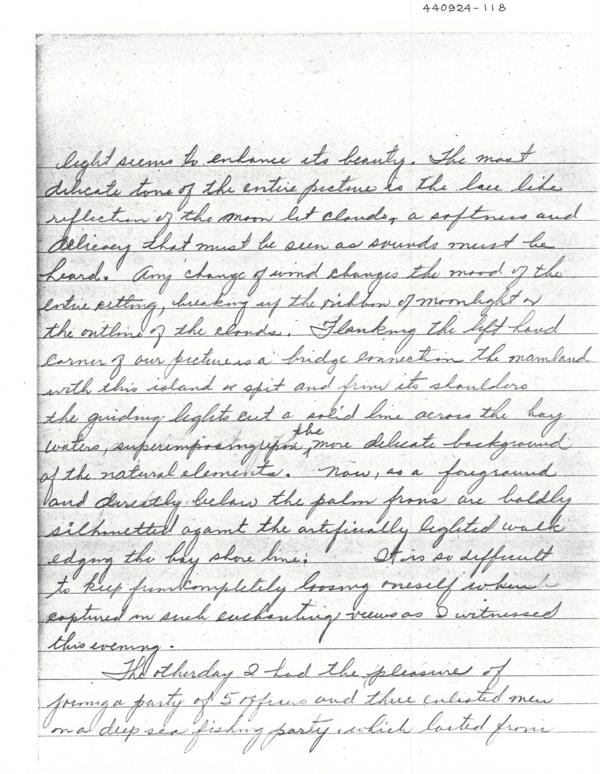 440924-118
light seems to enhance its beauty. The most
delicate tone of the entire picture is the lace like
reflection of the moon lit clouds, a softness and
delicacy that must be seen as sounds must be
heard. Any change of wind changes the mood of the
entire setting, breaking up the ribbon of moonlight or
the outline of the clouds. Flanking the left hand
corner of our picture is a bridge connection the mainland
with this island or spit and from its shoulders
the guiding lights cut a solid line across the bay
waters, superimposing upon the more delicate background
of the natural elements. Now, as a foreground
and directly below the palm frons are boldly
silhouetted against the artificially lighted walk
edging the bay shore line. It is so difficult
to keep from completely loosing oneself when
captured in such enchanting views as I witnessed
this evening.
The otherday I had the pleasure of
joining a party of 5 officers and three enlisted men
on a deep sea fishing party which lasted from